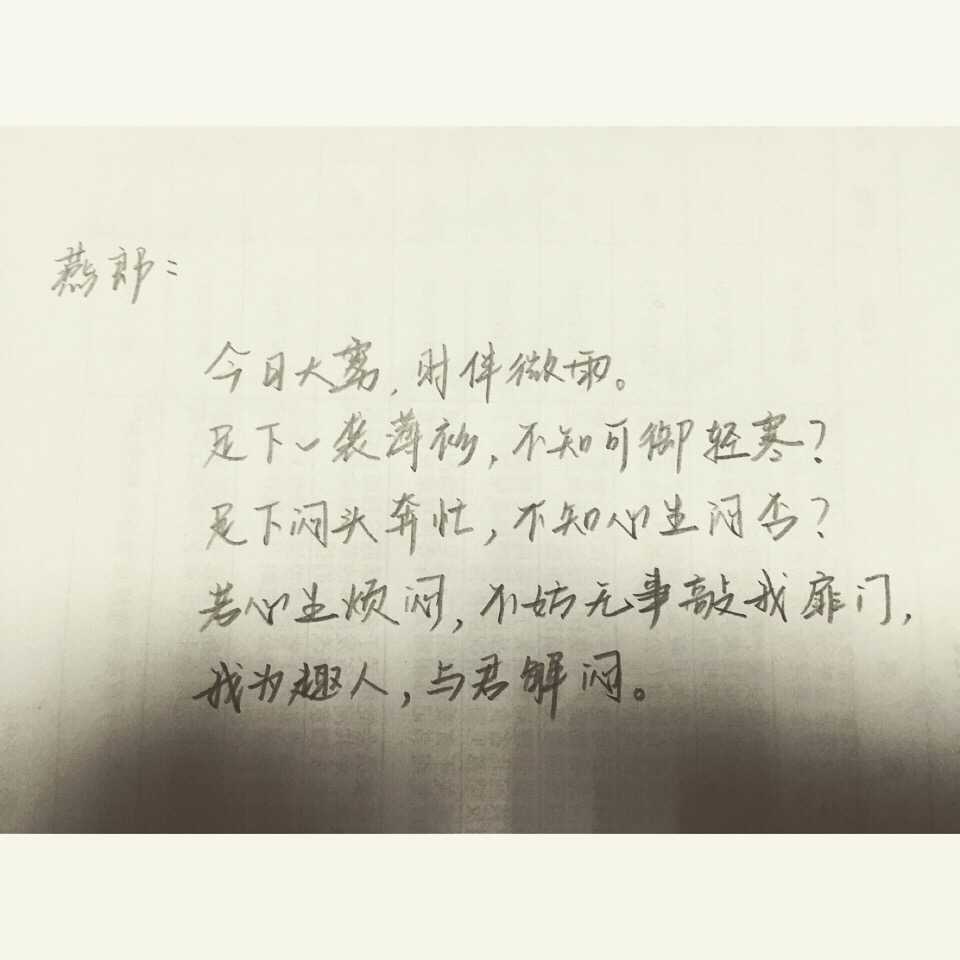 燕郎：
今日大雾，时伴微雨。
足下一袭薄衫，不知可御轻寒？
足下闷头奔忙，不知心生闷否？
若心生烦闷，不妨无事敲我扉门，
我为趣人，与君解闷。